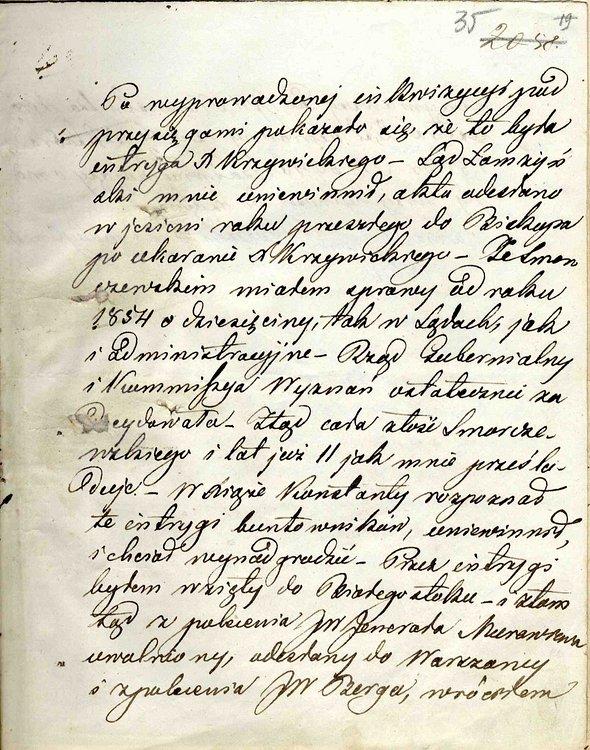 35 19
20 58.
Po wyprowadzonej inkwizycyi pod
przysięgami pokazało się, że to była
intryga X Krzywickiego – Sąd Łomżyń
ski mnie uniewinnił, akta odesłano
w jesieni roku przeszłego do Biskupa
po ukaranie X Krzywickiego – Ze Smor
czewskim miałem sprawy od roku
1854 o dziesięciny, tak w Sądach, jak
i Administracyjne – Rząd Gubernialny
i Kommissya Wyznań ostatecznie za
decydowała – Ztąd cała złość Smorcze-
wskiego i lat już 11 jak mnie prześla-
duje. – W Xiąże Konstanty rozpoznał
te intrygi buntowników, uniewinnił,
i chciał wynadgrodzić – Przez intrygi
byłem wzięty do Białegostoku – i ztam
tąd z polecenia JW Jenerała Murawiewa
uwolniony, odesłany do Warszawy
i z polecenia JW Berga, wróciłem